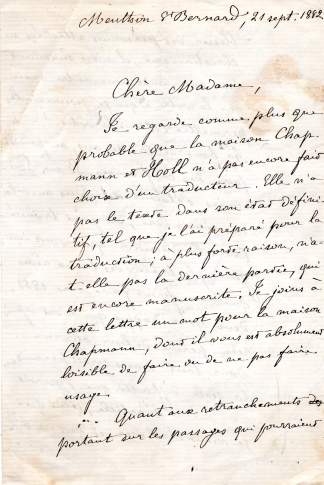 Menthon St Bernard, 21 sept. 1882
Chère Madame,
Je regarde comme plus que
probable que la maison Chap-
mann et Holl n'a pas encore fait
choix d'un traducteur. Elle n'a
pas le texte dans son état défini-
tif, tel que je l'ai préparé pour la
traduction; à plus forte raison, n'a-
t-elle pas la dernière partie, qui
est encore manuscrite. Je joins à
cette lettre un mot pour la maison
Chapmann, dont il vous est absolument
loisible de faire ou de ne pas faire
usage.
Quant aux retranchements
portant sur les passages qui pourraient